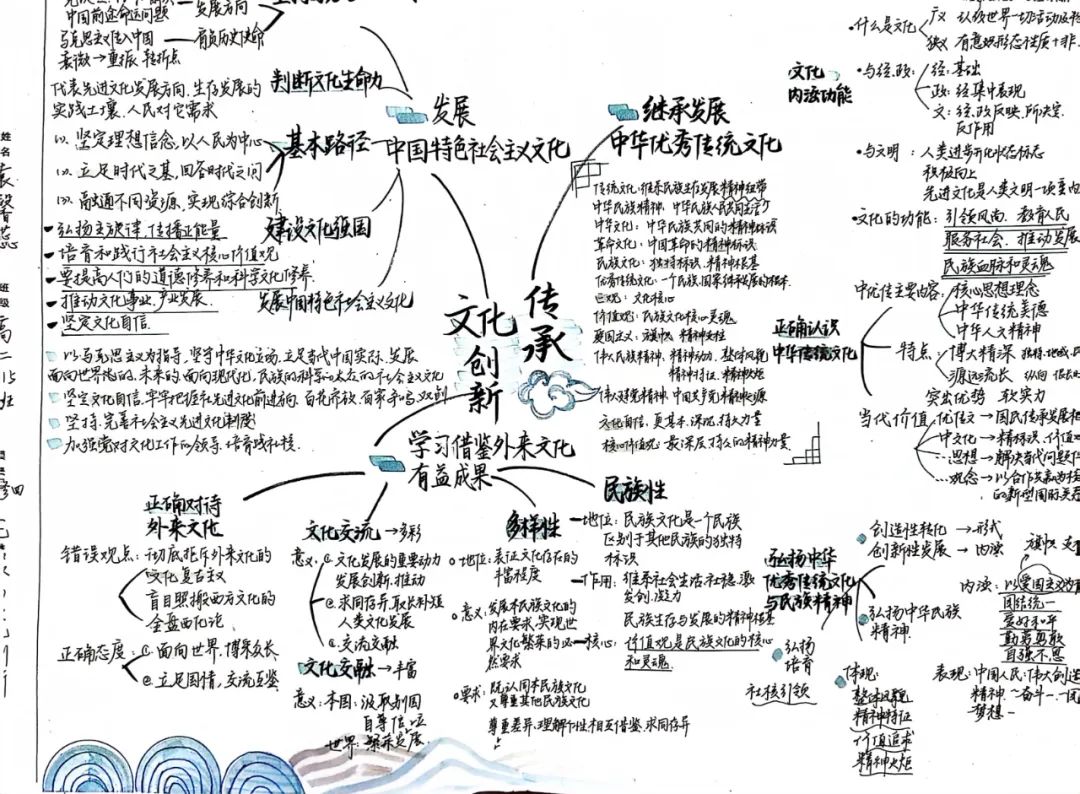 文化
创新
传承
发展
中国特色社会主义文化
发展方向
中国前途命运问题
马克思主义传入中国 — 肩负历史使命
衰微→重振 转折点
判断文化生命力
代表先进文化发展方向、生存发展的
实践土壤、人民对它需求
基本路径
坚定理想信念,以人民为中心
立足时代之基,回答时代之问
融通不同资源、实现综合创新
建设文化强国
弘扬主旋律 传播正能量
培育和践行社会主义核心价值观
要提高人们的道德修养和科学文化修养
推动文化事业、产业发展
坚定文化自信
发展中国特色社会主义文化
以马克思主义为指导,坚守中华文化立场,立足当代中国实际,发展
面向世界的、未来的、面向现代化,民族的科学的大众的社会主义文化
坚定文化自信,牢牢把握社先进文化前进方向,百花齐放,百家争鸣,双创
坚持、完善社会主义先进文化制度
加强党对文化工作的领导、培育践行社核
继承发展
中华优秀传统文化
传统文化:维系民族生存发展精神纽带
中华文化:中华民族共同的精神标识
革命文化:中国革命的精神标识
民族文化:独特标识、精神根基
价值观:民族文化核心灵魂
爱国主义:
伟大民族精神:
精神特征、精神火炬
文化自信:更基本、深沉、持久力量
核心价值观:最深层、持久的精神力量
文化
内涵功能
·什么是文化
广义
狭义 有意识形态性质+非
·与经、政:
经:基础
政:经集中表现
文:经、政反映,所决定,
反作用
·与文明:人类进步开化状态标志
积极向上
先进文化是人类文明一项重要内
·文化的功能:引领风尚、教育人民
服务社会、推动发展
民族血脉和灵魂
正确认识
中华传统文化
中优传主要内容:
核心思想理念
中华传统美德
中华人文精神
特点:
博大精深
源远流长
突出优势 软实力
当代价值
优传文→国民传承发展根
中文化→精标识、价值
思想→解决当代问题
观念→以合作共赢为核
的新型国际关系
学习借鉴外来文化
有益成果
正确对待
外来文化
错误观点:
彻底拒斥外来文化的
文化复古主义
盲目照搬西方文化的
全盘西化论
正确态度:
面向世界,博采众长
立足国情,交流互鉴
文化交流→多彩
意义:
文化发展的重要动力
发展创新、推动
求同存异、取长补短
人类文化发展
交流交融
文化交融→丰富
意义:本国:汲取别国
世界:繁荣发展
多样性
·地位:表征文化存在的
丰富程度
·意义:发展本民族文化的
内在要求,实现世
界文化繁荣的必
然要求
·要求:既认同本民族文化
又尊重其他民族文化
尊重差异、理解个性,相互借鉴,求同存异
民族性
地位:民族文化是一个民族
区别于其他民族的独特
标识
作用:维系社会生活,社稳,激
发创、凝力
民族生存与发展的精神根基
核心:价值观是民族文化的核心
和灵魂
弘扬中华
优秀传统文化
与民族精神
创造性转化→形式
创新性发展→内涵
弘扬中华民族
精神
内涵:以爱国主义为
团结统一
爱好和平
勤劳勇敢
自强不息
弘扬
培育
社核引领
体现:
整体风貌
精神特征
价值追求
精神火炬
表现:中国人民:伟大创造
精神、~奋斗~、~团
~梦想~
姓名
班级
高二15班